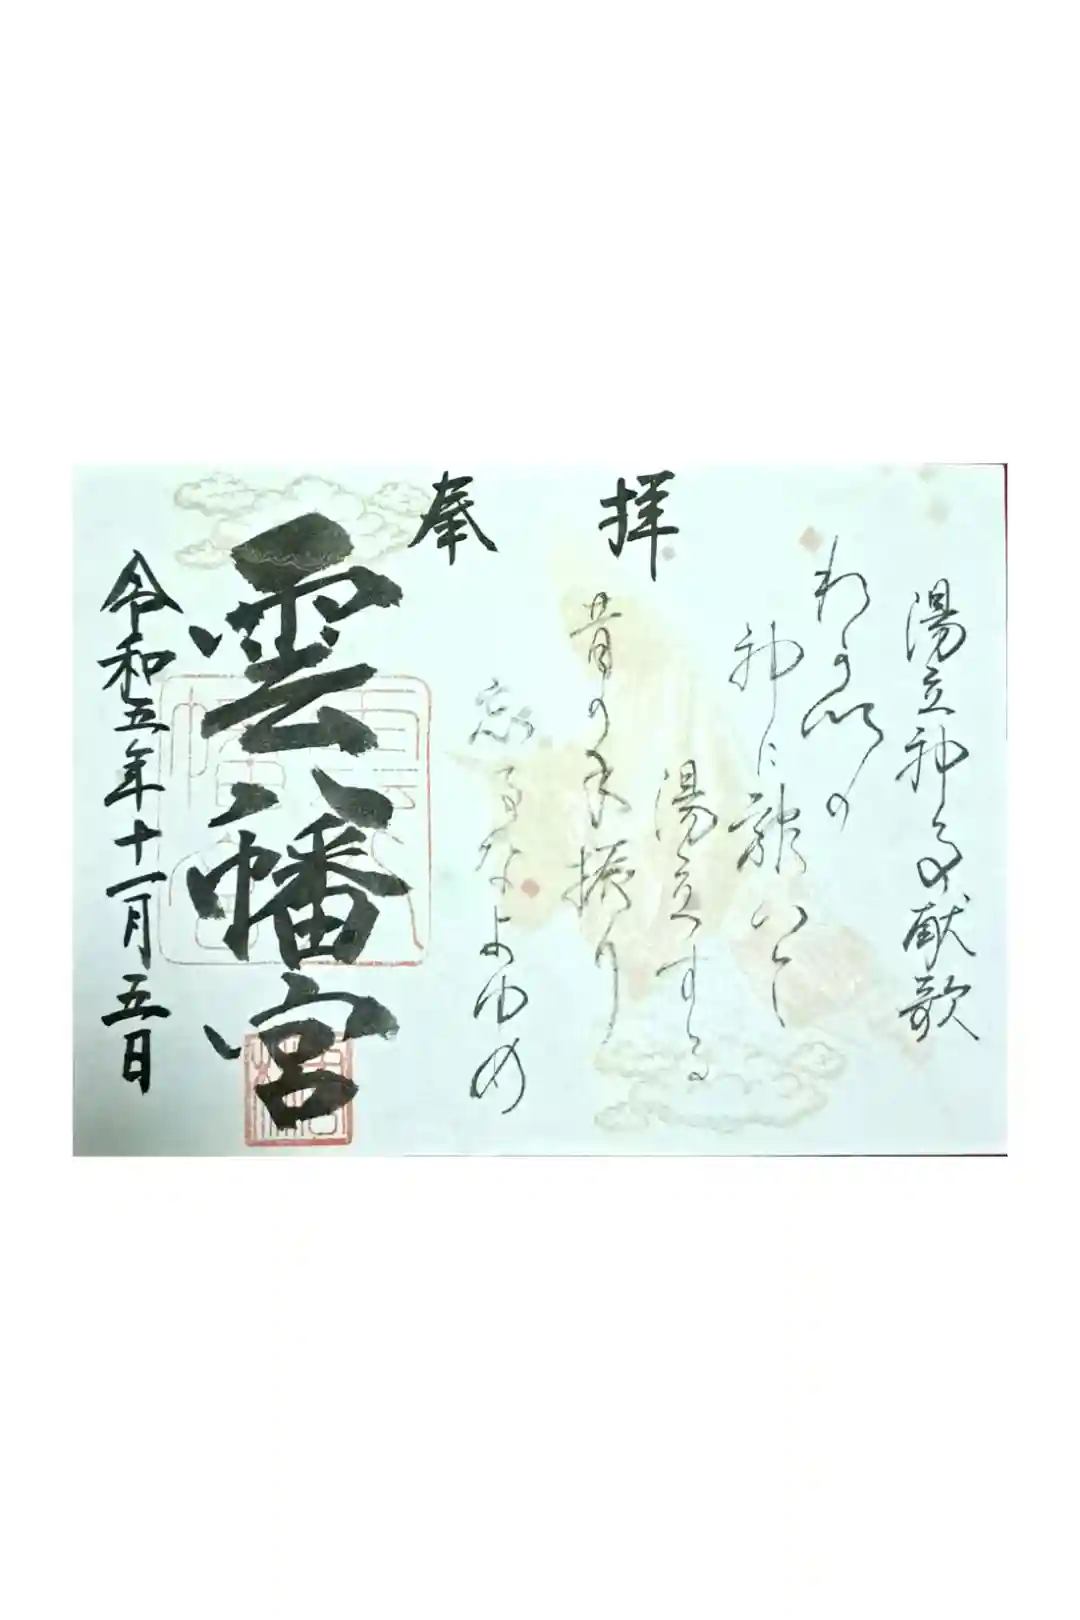 湯立神事献歌
神に
湯立する
昔の手振り
忘るなよゆめ
奉拝
雲八幡宮
令和五年十一月五日